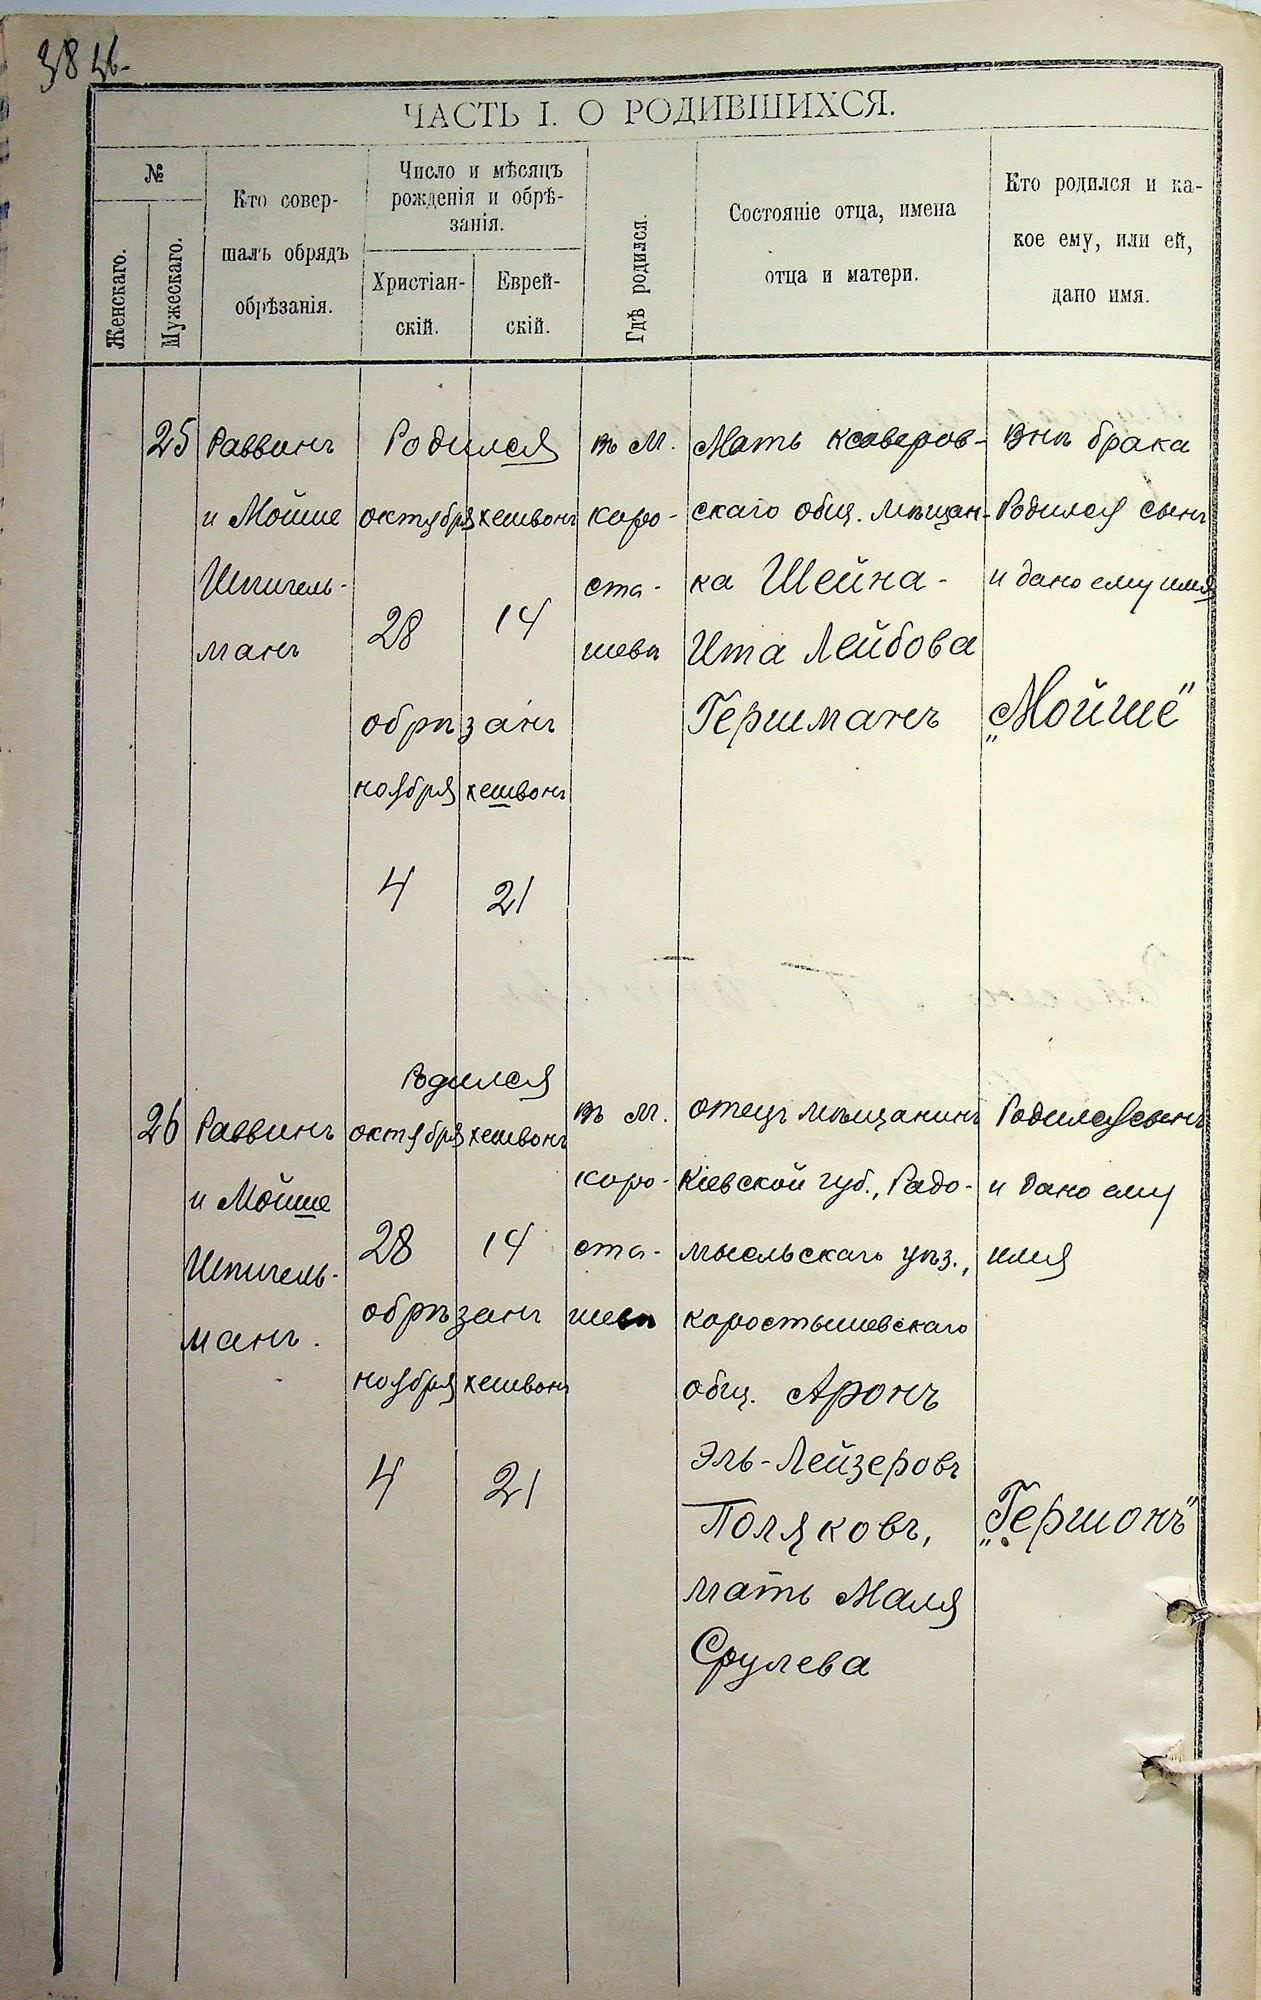 38
ЧАСТЬ I. О РОДИВШИХСЯ.
№
Женскаго.
Мужескаго.
Кто совер-
шалъ обрядъ
обрѣзанія.
Число и мѣсяцъ
рожденія и обрѣ-
занія.
Христіан-
скій.
Еврей-
скій.
Гдѣ родился.
Состояніе отца, имена
отца и матери.
Кто родился и ка-
кое ему, или ей,
дано имя.
25
Раввинъ
и Мойше
Шпигель-
манъ
Родился
октября хешвонъ
28 14
обрѣзанъ
ноября хешвонъ
4 21
въ м.
коро-
ста-
шевъ
Мать Ксаверов-
скаго общ. мѣщан-
ка Шейна-
Ита Лейбова
Гершманъ
Внѣ брака
Родился сынъ
и дано ему имя
„Мойше"
26
Раввинъ
и Мойше
Шпигель-
манъ.
Родился
октября хешвонъ
28 14
обрѣзанъ
ноября хешвонъ
4 21
въ м.
коро-
ста-
шевъ
отецъ мѣщанинъ
Кіевской губ., Радо-
мысльскаго уѣз.,
коростышевскаго
общ. Аронъ
Эль-Лейзеровъ
Поляковъ,
мать Маля
Срулева
Родился сынъ
и дано ему
имя
„Гершонъ"